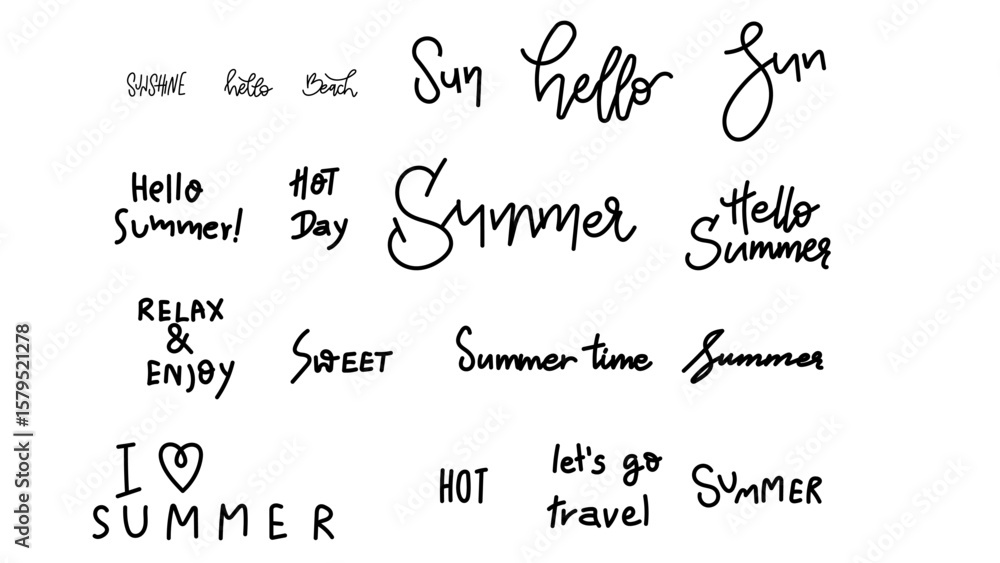 SUNSHINE
hello
Beach
Sun
hello
Sun
Hello
Summer!
HOT
Day
Summer
Hello
Summer
RELAX
&
ENJOY
SWEET
Summer time
Summer
I ♡
SUMMER
HOT
let's go
travel
SUMMER
Adobe Stock | #1579521278